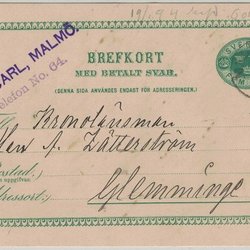 19/9 94
CARL, MALMÖ.
Telefon No. 64.
BREFKORT
MED BETALT SVAR.
(DENNA SIDA ANVÄNDES ENDAST FÖR ADRESSERINGEN.)
Kronolänsman
A. Zätterström
Glemminge